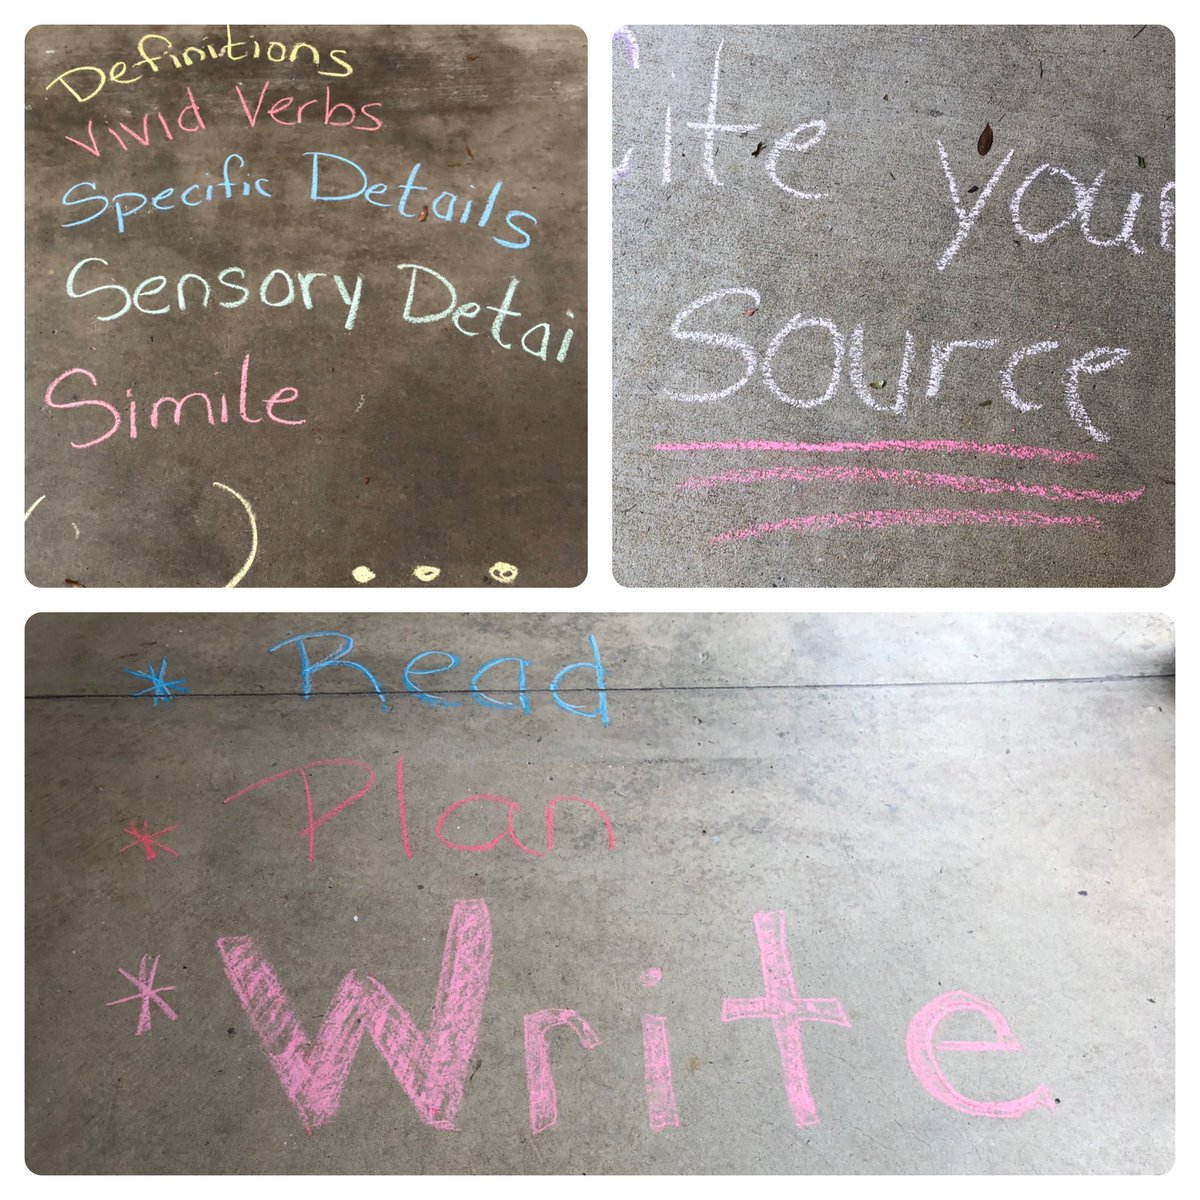 Definitions
Vivid Verbs
Specific Details
Sensory Detai
Simile
( ) ...
Cite your
Source
* Read
* Plan
* Write